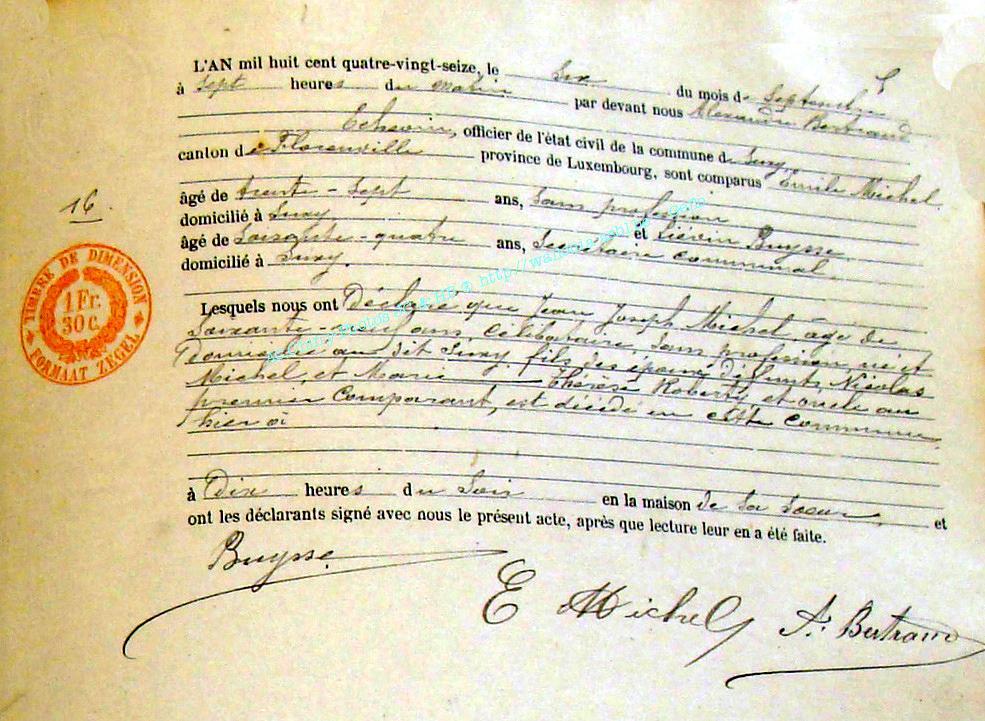 L'AN mil huit cent quatre-vingt-seize, le Six du mois de Septembre
à Sept heures du matin par devant nous Alexandre Bertrand
Echevin, officier de l'état civil de la commune de Suxy
canton de Florenville province de Luxembourg, sont comparus Emile Michel
âgé de trente-sept ans, Sans profession
domicilié à Suxy et Liévin Buysse
âgé de Soixante-quatre ans, Secrétaire communal
domicilié à Suxy.
16.
TIMBRE DE DIMENSION
1 Fr.
30 c.
FORMAAT ZEGEL
Lesquels nous ont Déclaré que Jean Joseph Michel, âgé de
Soixante- ans, célibataire, Sans profession, né et
Domicilié au dit Suxy, fils des époux défunts Nicolas
Michel, et Marie Thérèse Roberty, et oncle au
premier Comparant, est décédé en cette Commune
hier
à Dix heures du Soir en la maison de Sa Soeur, et
ont les déclarants signé avec nous le présent acte, après que lecture leur en a été faite.
Buysse
E Michel
A. Bertrand
http://